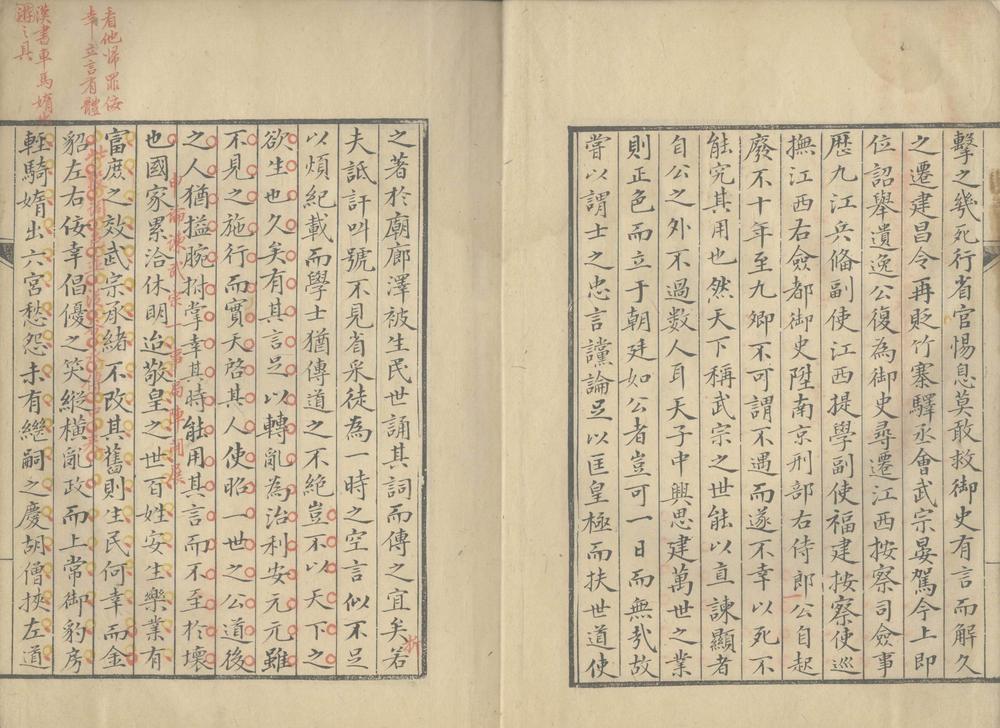 擊之幾死行省官惕息莫敢救御史有言而解久
之遷建昌令再貶竹寨驛丞會武宗晏駕今上即
位詔舉遺逸公復為御史尋遷江西按察司僉事
歷九江兵俻副使江西提學副使福建按察使巡
撫江西右僉都御史陞南京刑部右侍郎公自起
廢不十年至九卿不可謂不遇而遂不幸以死不
能究其用也然天下稱武宗之世能以直諫顯者
自公之外不過數人耳天子中興思建萬世之業
則正色而立于朝廷如公者豈可一日而無㢤故
嘗以謂士之忠言讜論足以匡皇極而扶世道使
之著於廟廊澤被生民世誦其詞而傳之宜矣若
夫詆訐叫號不見省采徒為一時之空言似不足
以煩紀載而學士猶傳道之不絕豈不以天下之
欲生也久矣有其言足以轉亂為治利安元元雖
不見之施行而實天啓其人使昭一世之公道後
之人猶搤腕拊掌幸其時能用其言而不至於壞
也國家累洽休明迨敬皇之世百姓安生樂業有
富庶之效武宗承緒不改其舊則生民何幸而金
貂左右佞幸倡優之笑縱橫亂政而上常御豹房
輕騎媠出六宮愁怨未有繼嗣之慶胡僧挾左道
看他歸罪佞
幸立言有體
漢書車馬媠
遊之具